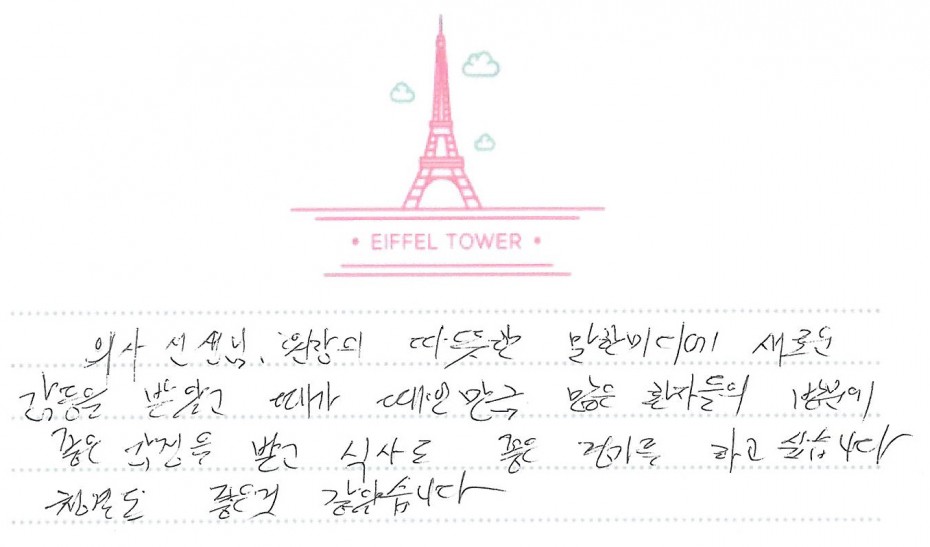 • EIFFEL TOWER •
의사 선생님, 원장의 따뜻한 말한마디에 새로운
감동을 받았고 때가 때인만큼 많은 환자들의
좋은 받고 식사도 좋은 하고 싶습니다
친절도 좋은것 같았습니다